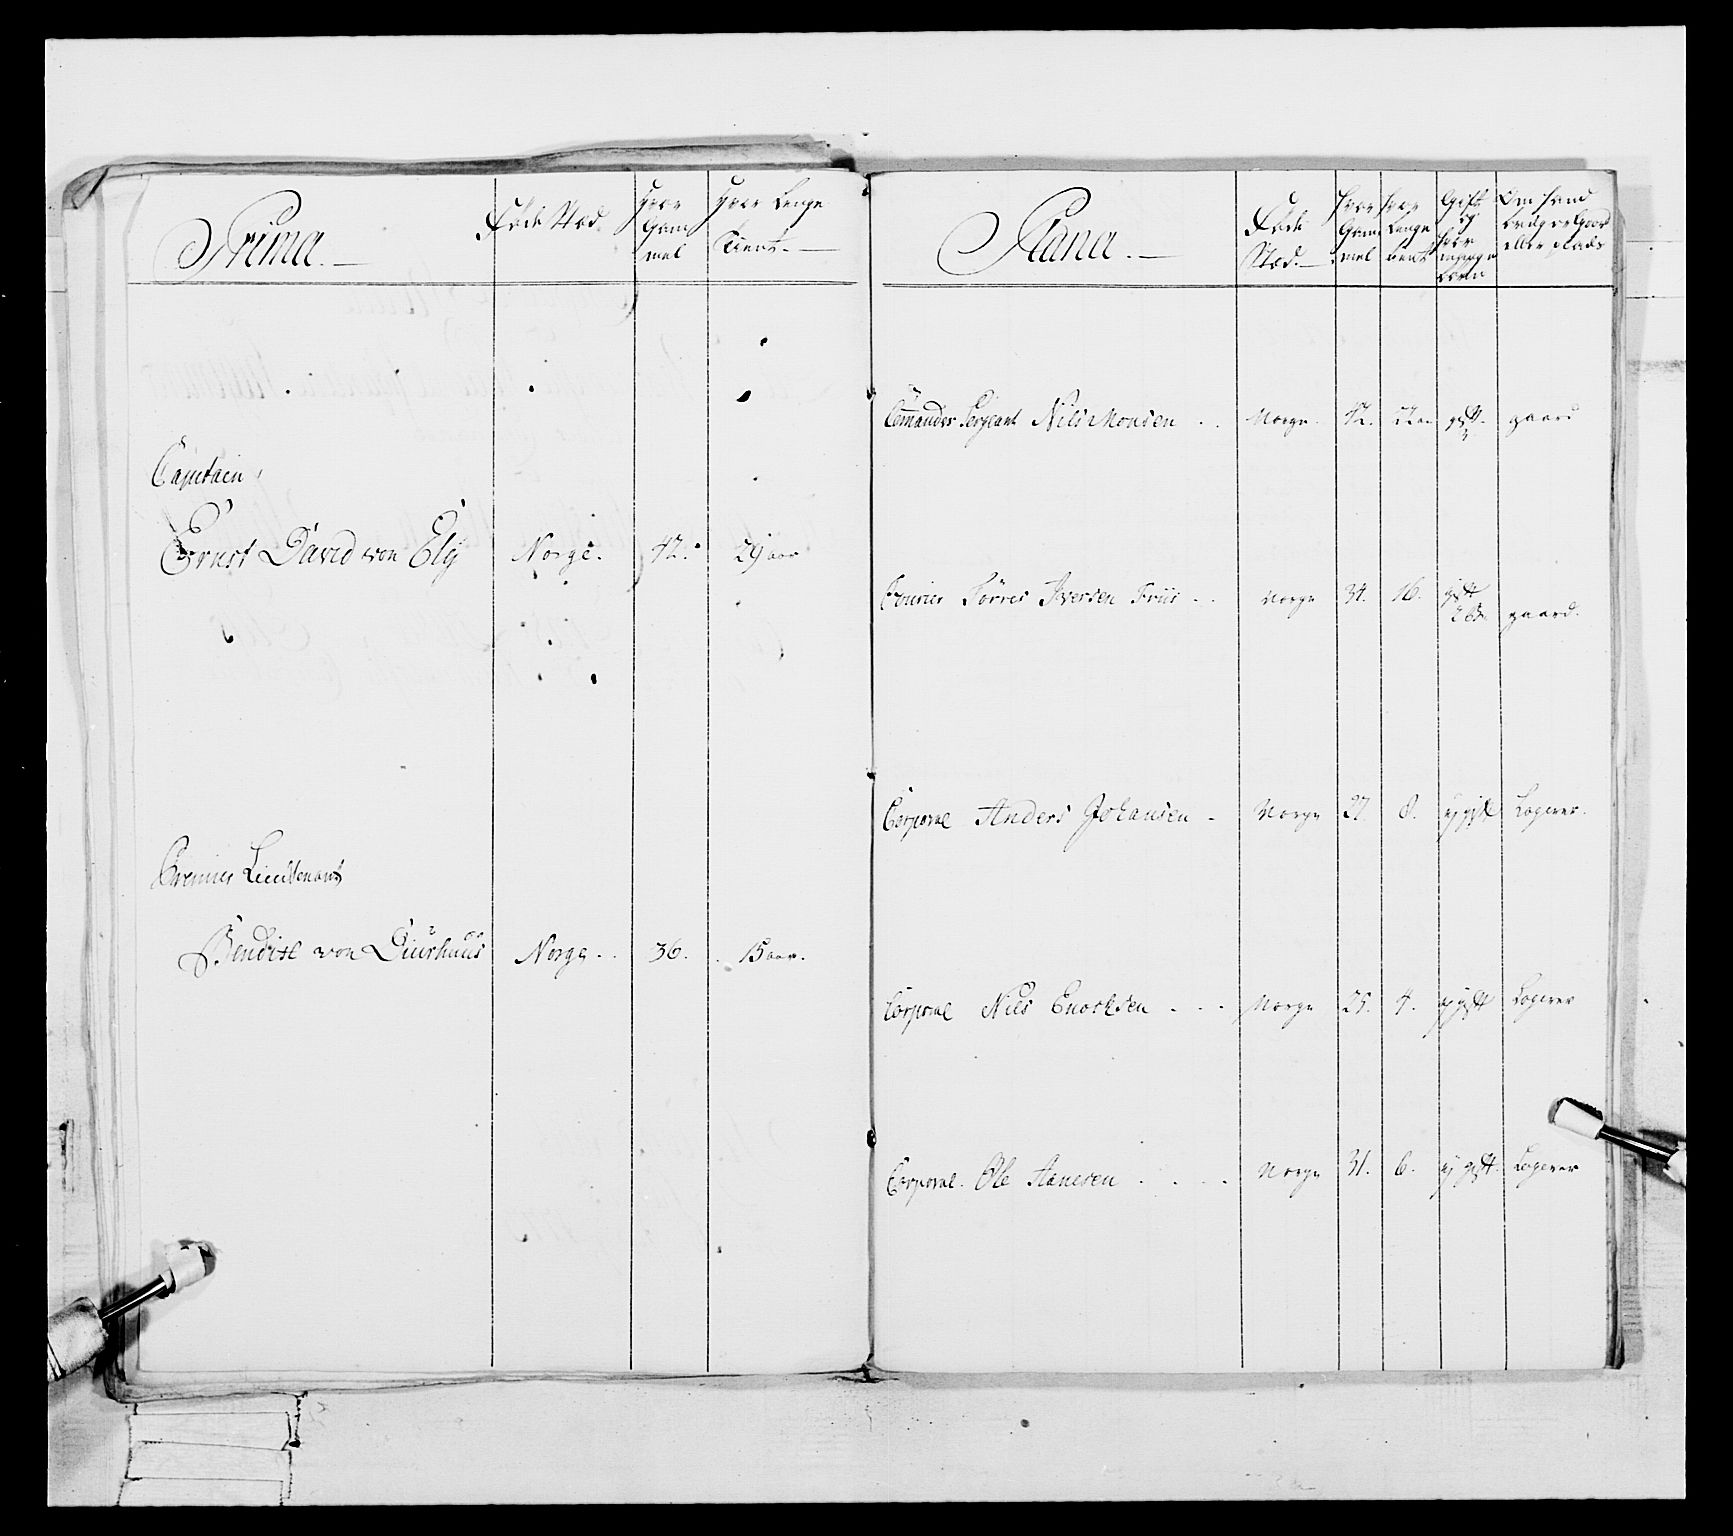 Prima.
Føde Stæd
Hvor Gammel
Hvor Lenge Tient.
Capitain
Ernst David von Ely Norge. 42. 29 aar
Premier Lieutenant
Bendix von Diurhuus Norge. 36. 15 aar.
Plana.
Føde Stæd.
Hvor Gammel
Hvor Lenge tient
Gift og hvor mange børn
Om hand bruger Gaard eller plads
Commander Sergeant Nils Monsen Norge. 42. 22 gift. gaard
Fourier Tørres Iversen Friis Norge 34. 16. gift 2 gaard.
Corporal Anders Johansen Norge 27. 8. ej gift Logerer.
Corporal Nils Enochsen Norge 25. 4. ej gift Logerer
Corporal. Ole Hansen Norge 31. 6. ej gift. Logerer